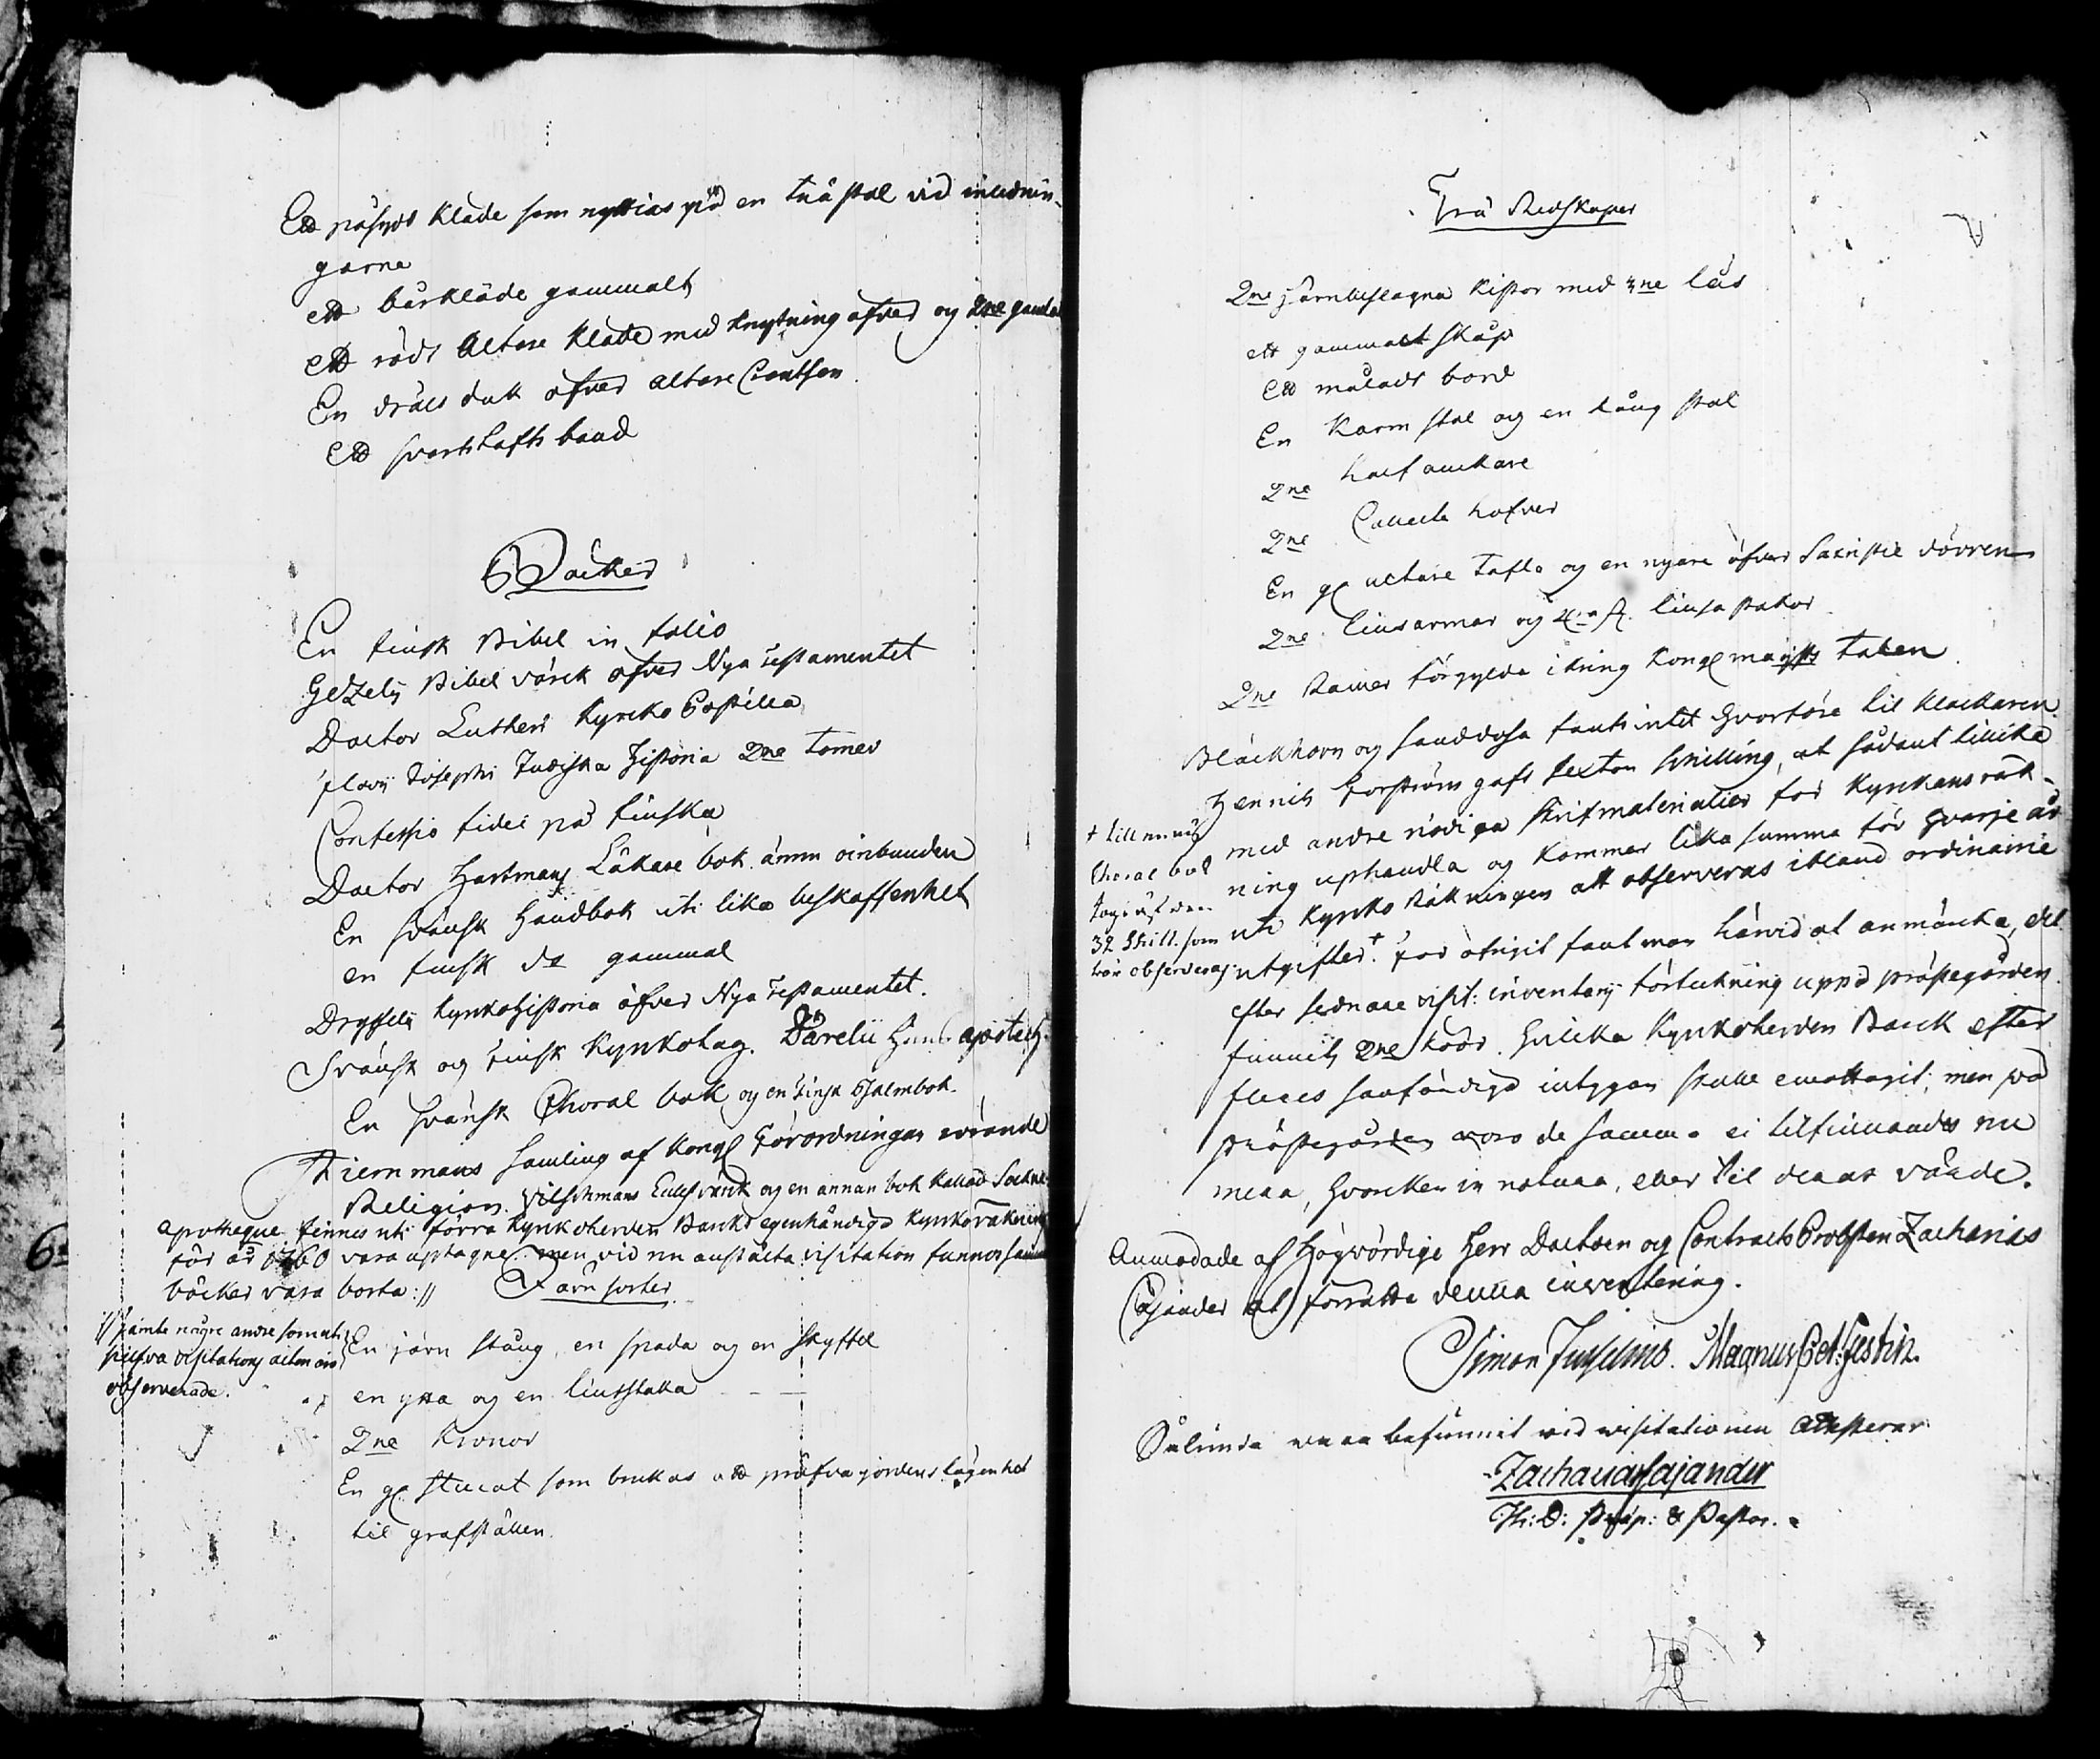 Ett påsydt Kläde som nyttias på en trä stol vid inlednin-
garne
ett bårkläde gammalt
ett rödt Altare Kläde med knytning öfver og 2ne gamla
En dräls duk öfver altare
Ett svart tafts band
Böcker
En finsk Bibel in folio
Gezelii Bibel värck öfver Nya Testamentet
Doctor Lutheri Kyrcko Postilla
Flavii Josephi Judiska Historia 2ne Tomer
Confessio fidei på finska
Doctor Hartmans Läkare bok ännu oinbunden
En svänsk Handbok uti lika beskaffenhet
en finsk do gammal
Kyrkohistoria öfver Nya Testamentet.
Svänsk og Finsk Kyrkolag. Darelii Hus apotech.
En svänsk Choral bok og en Finsk Psalmbok.
Stiernmans Samling af Kongl Förordningar rörande
Religion. og en annan bok kallad Sockne
apotheque finnes uti förra Kyrkoherden Bancks egenhändiga Kyrkoräkning
för år 1760 vara uptagne men vid nu anstälta visitation funnos samma
böcker vara borta ://
Järn sorter
:// jämte några andre som uti
sielfva visitations acten äro
observerade.
En järn stång, en spada og en skyffel
en yxa og en liusstaka
2ne Kronor
En gl som brukas att pröfva jordens lägenhet
til grafställen.
Trä Redskaper
2ne järnbeslagna Kistor med 3ne lås
ett gammalt skåp
Ett måladt bord
En Karm stol og en lång stol
2ne half anckare
2ne Collecte håfver
En gl altare Tafla og en nyare öfver Sacristie dörren
2ne liusarmar og liusa stakar
2ne Ramer förgylda ikring Kongl maysts talen
Bläckhorn og sanddosa fants intet hvarföre til Klockaren
Hennik Forström gafs sexton schilling, at sådant tillika
med andre nödiga skrifmaterialier för Kyrkans räk-
ning uphandla og kommer lika summa för hvarje år
uti Kyrko Räkningen att observeras ibland ordinairie
utgifter.+ För öfrigit fant man härvid at anmärcka, det
+ till en ny
Choral bok
togs af den
32 skill. som
bör observeras
efter sednare visit: inventarii förtekning uppå prästegården
funnits 2ne Koor. hvilka Kyrkoherden Banck efter
flera intygan skulle emottagit; men på
prästegården voro de samma ei tilfinnandes nu
mera, hvarcken in natura, eller til deras värde.
Anmodade af Högvördige Herr Doctoren og Contracts Probsten Zacharias
Cajander at förrätta denna inventering.
Simon Juselius. Magnus Pet: Festin.
Sålunda vara befunnit vid visitationen attesterar
Zacharias Cajander
Th: D: Præp: & Pastor.